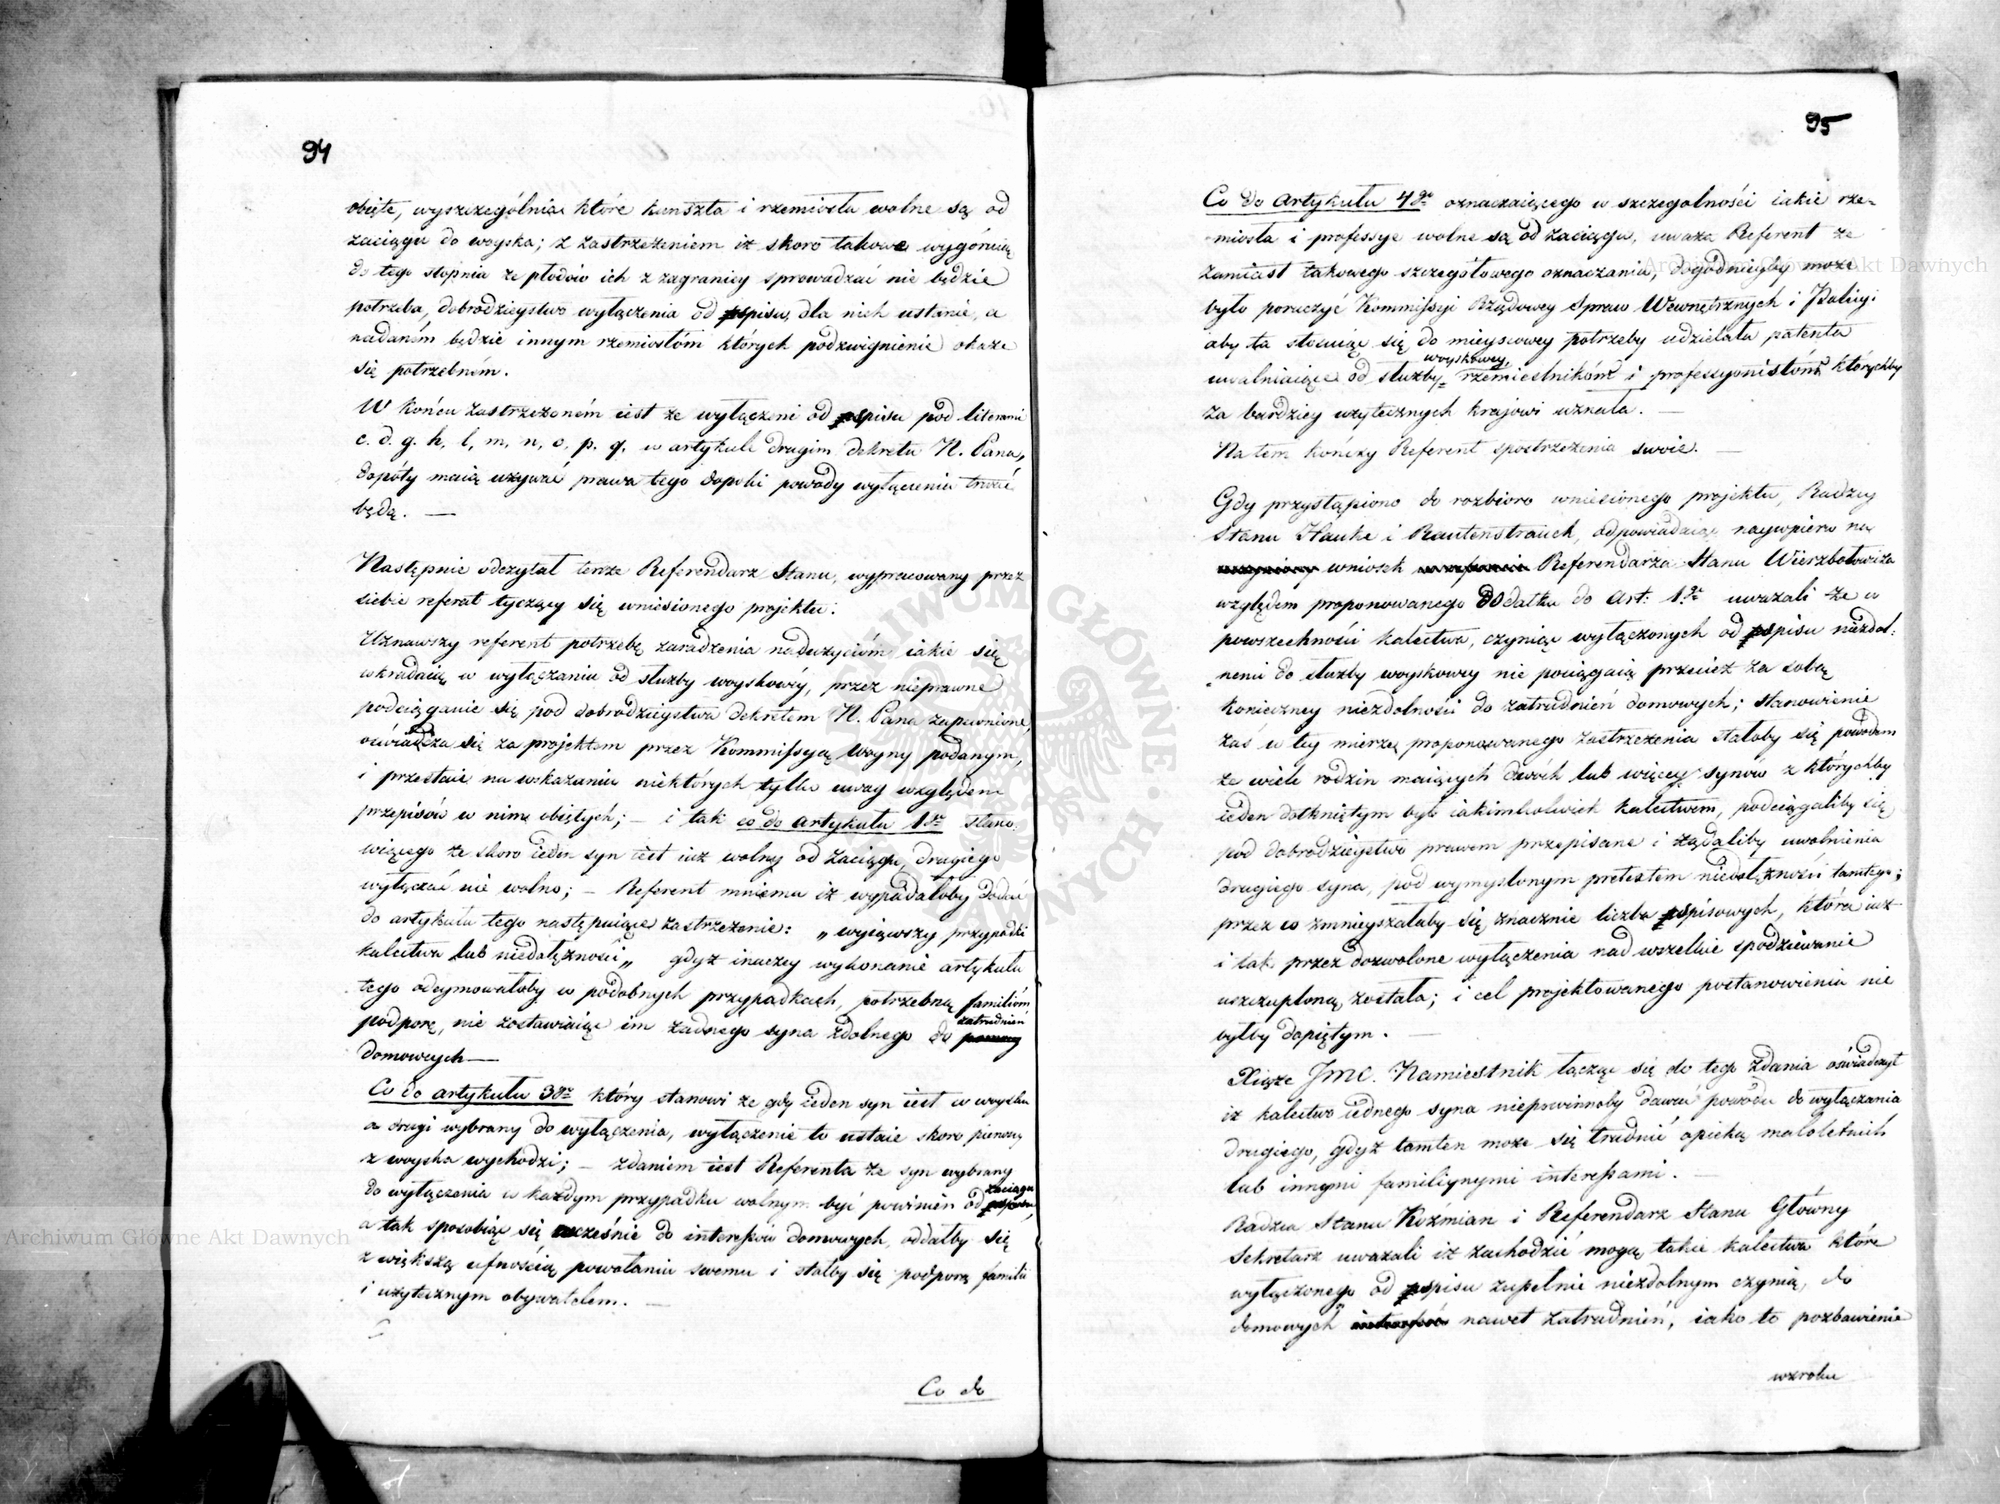 94
obięte, wyszczególniaiąc które kunszta i rzemiosła wolne są od
zaciągu do woyska; z zastrzeżeniem iż skoro takowe wygórują
do tego stopnia że płodów ich z zagranicy sprowadzać nie będzie
potrzeba, dobrodzieystwo wyłączenia od spisu, dla nich ustanie, a
nadaném będzie innym rzemiosłóm których podzwignienie okaże
się potrzebném.
W końcu zastrzeżoném iest że wyłączeni od spisu pod literami
c. d. g. h, l, m, n, o, p. q. w artykule drugim dekretu N. Pana,
dopóty maią używać prawa tego dopóki powody wyłączenia trwać
będą. —
Następnie odczytał tenże Referendarz Stanu, wypracowany przez
siebie referat tyczący się wniesionego projektu.
Uznawszy referent potrzebę zaradzenia nadużycióm iakie się
wkradaią w wyłączaniu od służby woyskowey, przez nieprawne
podciąganie się pod dobrodzieystwa dekretem N. Pana zapewnione,
oświadcza się za projektem przez Kommissyą Woyny podanym,
i przestaie na wskazaniu niektórych tylko uwag względem
przepisów w nim obiętych; — i tak co do artykułu 1go stano-
wiącego że skoro ieden syn iest iuż wolny od zaciągu, drugiego
wyłączać nie wolno; — Referent mniema iż wypadałoby dodać
do artykułu tego następuiące zastrzeżenie: „wyiąwszy przypadki
kalectwa lub niedołężności„ gdyż inaczey wykonanie artykułu
tego odeymowałoby w podobnych przypadkach, potrzebną familióm
podporę, nie zostawiaiąc im żadnego syna zdolnego do zatrudnień
domowych—
Co do artykułu 3go który stanowi że gdy ieden syn iest w woysku
a drugi wybrany do wyłączenia, wyłączenie to ustaie skoro pierwszy
z woyska wychodzi; — zdaniem iest Referenta że syn wybrany
do wyłączenia w każdym przypadku wolnym być powinien od zaciągu
a tak sposobiąc się wcześnie do interessów domowych, oddałby się
z większą ufnością powołaniu swemu i stałby się podporą familii
i użytecznym obywatelem. —
Co do
95
Co do Artykułu 4go oznaczaiącego w szczególności iakie rze-
miosła i professye wolne są od zaciągu, uważa Referent że
zamiast takowego szczegółowego oznaczania, dogodnieyby może
było poruczyć Kommissyi Rządowey Spraw Wewnętrznych i Policyi
aby ta stosuiąc się do mieyscowey potrzeby udzielała patenta
uwalniaiące od służby woyskowey rzemieślnikóm i professyonistóm którychby
za bardziey użytecznych krajowi uznała. —
Na tem kończy Referent spostrzeżenia swoie. —
Gdy przystąpiono do rozbioru wniesionego projektu, Radzcy
Stanu Hauke i Rautenstrauch, odpowiadaiąc naypierw na
wniosek Referendarza Stanu Wierzbołowicza
względem proponowanego dodatku do Art: 1go uważali że w
powszechności kalectwa, czyniąc wyłączonych od spisu niezdol-
nemi do służby woyskowey nie pociągaią przecież za sobą
konieczney niezdolności do zatrudnień domowych; stanowienie
zaś w tey mierze proponowanego zastrzeżenia stałoby się powodem
że wiele rodzin maiących dwóch lub więcey synów z którychby
ieden dotkniętym był iakimkolwiek kalectwem, podciągałiby się
pod dobrodzieystwo prawem przepisane i żądaliby uwolnienia
drugiego syna, pod wymyślonym pretextem niedołężności tamtego;
przez co zmnieyszałaby się znacznie liczba spisowych, która iuż
i tak przez dozwolone wyłączenia nad wszelkie spodziewanie
uszczuploną została; i cel projektowanego postanowienia nie
byłby dopiętym. —
Xiąże JMC. Namiestnik łącząc się do tego zdania oświadczył
iż kalectwo iednego syna niepowinnoby dawać powodu do wyłączania
drugiego, gdyż tamten może się trudnić opieką małoletnich
lub innymi familiynymi interessami. —
Radzca Stanu Koźmian i Referendarz Stanu Główny
Sekretarz uważali iż zachodzić mogą takie kalectwa które
wyłączonego od spisu zupełnie niezdolnym czynią, do
domowych nawet zatrudnień, iako to pozbawienie
wzroku
Archiwum Główne Akt Dawnych
Archiwum Główne Akt Dawnych
ARCHIWUM GŁÓWNE AKT DAWNYCH